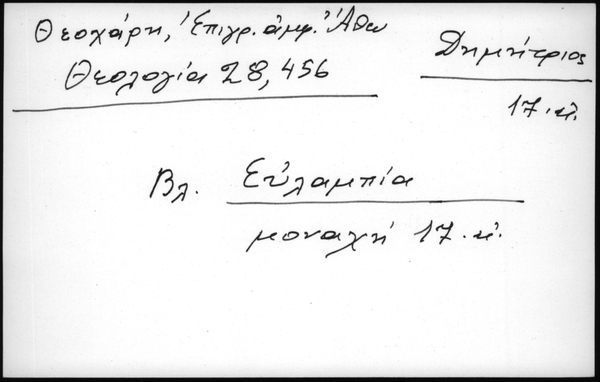 Θεοχάρη, Ἐπιγρ. ἀμφ. Ἄθω
Θεολογία 28, 456
Δημήτριος
17. αἰ.
Βλ. Εὐλαμπία
μοναχή 17. αἰ.